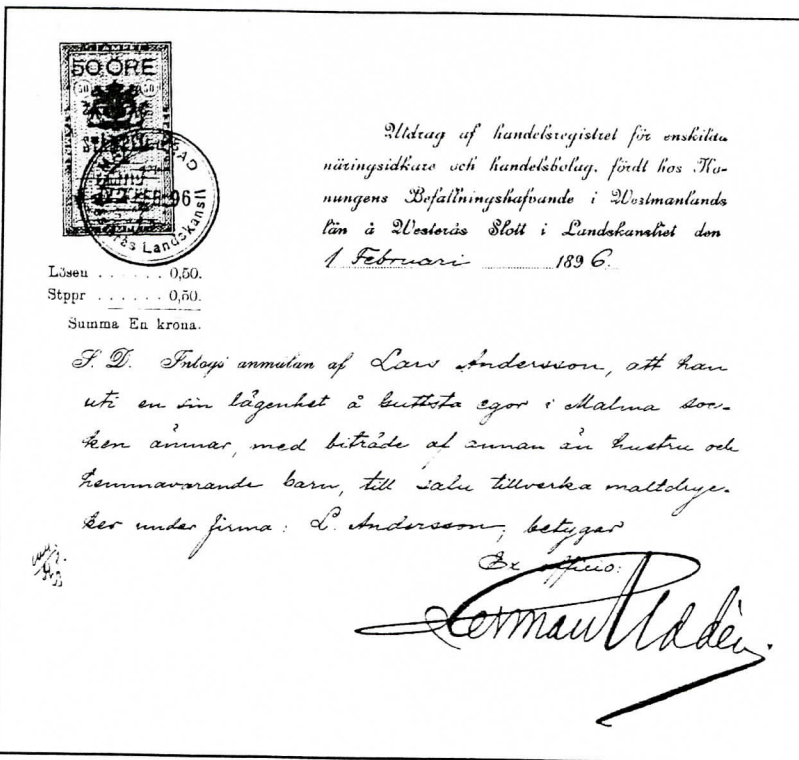 STÄMPEL
50 ÖRE
50 50
FEB 96
Landskansli
Lösen . . . . . . 0,50.
Stppr . . . . . . 0,50.
Summa En krona.
Utdrag af handelsregistret för enskilda
näringsidkare och handelsbolag, fördt hos Ko-
nungens Befallningshafvande i Westmanlands
län å Westerås Slott i Landskansliet den
1 Februari 1896.
S. D. Intogs anmälan af Lars Andersson, att han
uti en sin lägenhet å Guttsta egor i Malma soc-
ken ämnar, med biträde af annan än hustru och
hemmavarande barn, till salu tillverka maltdryc-
ker under firma: L. Andersson, betygar
Ex officio:
Herman Uddén.